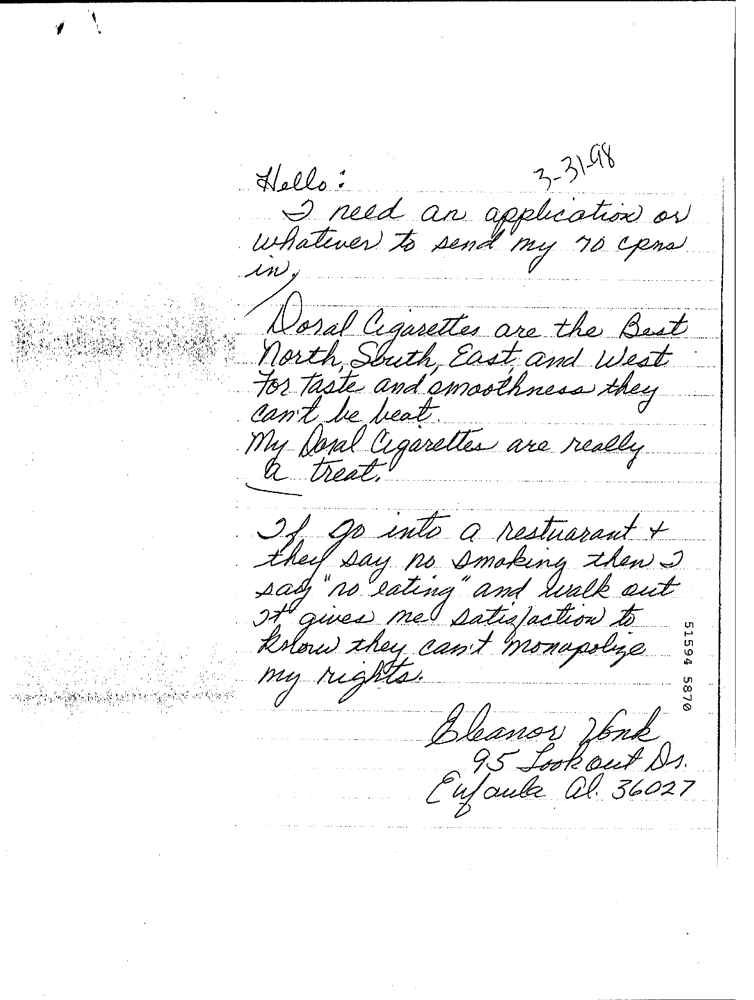 3-31-98
Hello:
I need an application or
whatever to send my 70 cpns
in,
Doral Cigarettes are the Best
North, South, East, and West
For Taste and smoothness they
can't be beat.
My Doral Cigarettes are really
a treat.
If go into a restuarant +
they say no smoking then I
say "no eating" and walk out
It gives me satisfaction to
know they can't monapolize
my rights.
Eleanor
95 Lookout Dr.
Eufaula Al. 36027
51594 5870